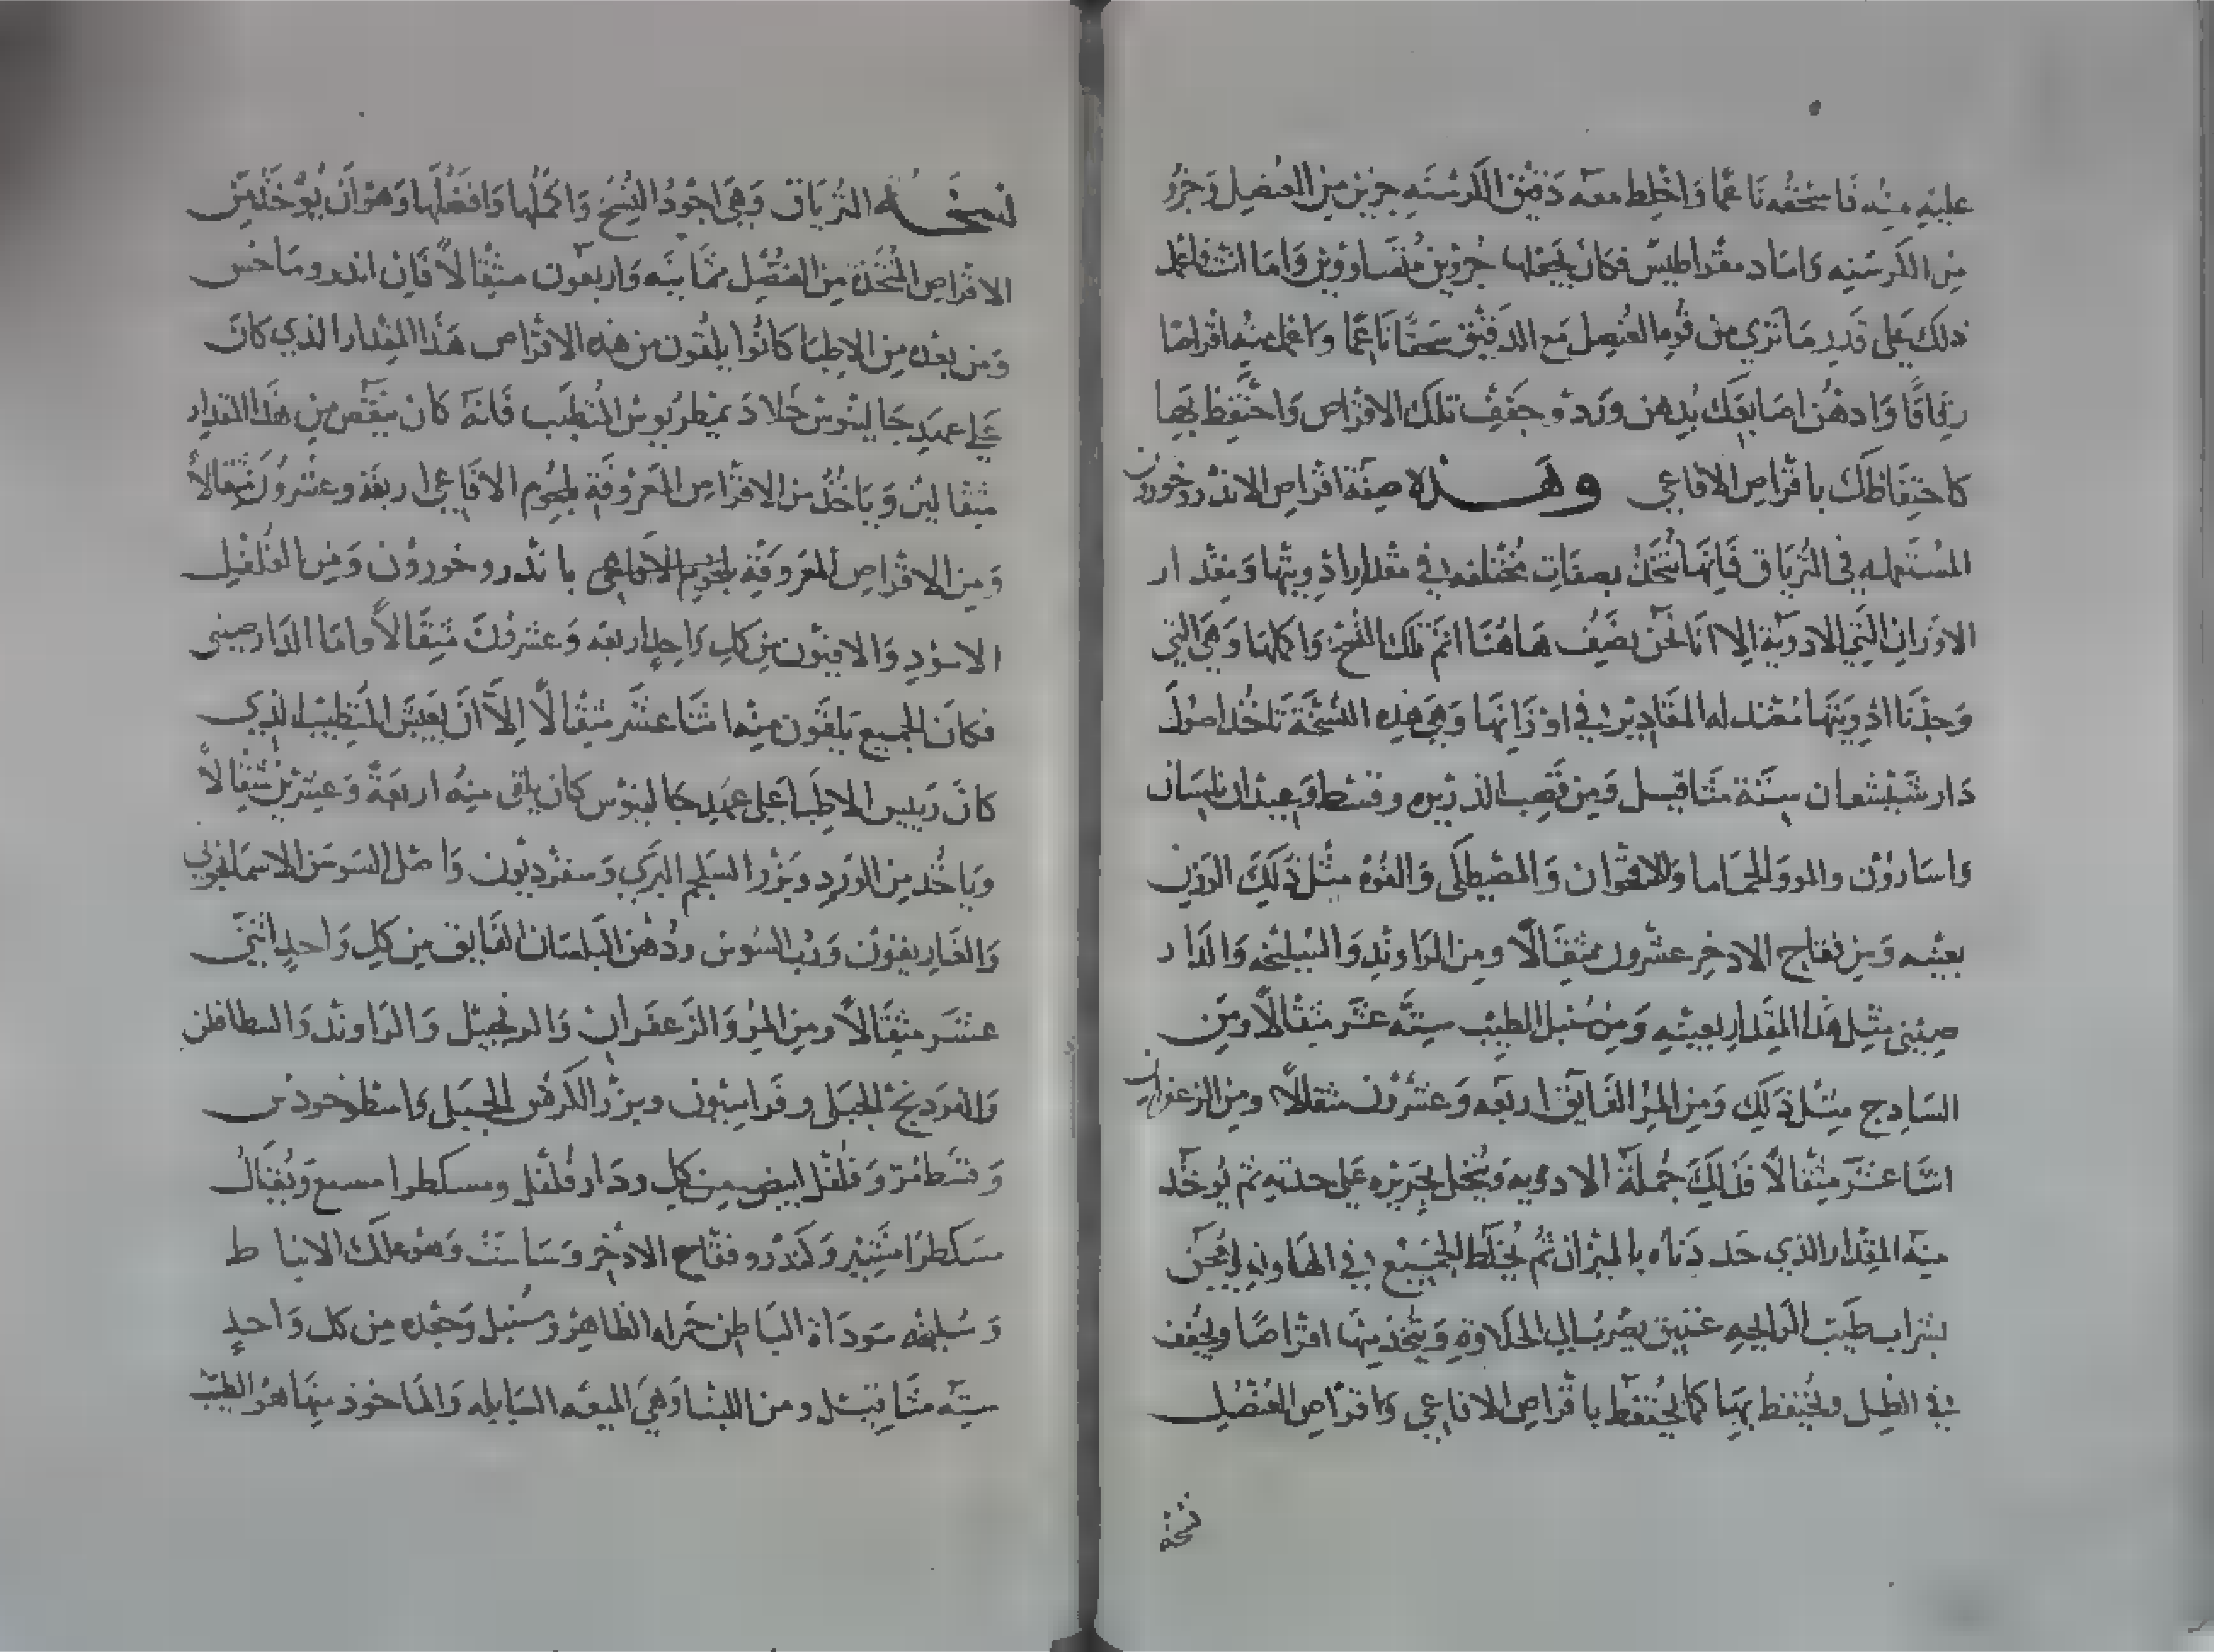 عليه منه فاسحقه ناعما واخلط معه دقيق الكرسنه جزين من العنصل وجزو
من الكرسنه واما دمقراطيس فكان يجعلها جزوين متساويين واما انت فاعمل
ذلك على قدر ما تري من قوه العنصل مع الدقيق سحقا ناعما واعمل منه اقراصا
رقاقا وادهن اصابعك بدهن ورد وجفف تلك الاقراص واحتفظ بها
كاحتفاظك باقراص الافاعي وهذه صفة اقراص الاندروخورون
المستعمله في الترياق فانها تتخذ بصفات مختلفه في مقدار ادويتها ومقدار
الاوزان التي الادوية الا انا نحن نصف هاهنا اتم تلك النسخ واكملها وهي التي
وجدنا ادويتها معتدله المقادير في اوزانها وهي هذه النسخة تاخذ اصول
دارشيشعان ستة مثاقيل ومن قصب الذريره وقسط وعيدان بلسان
واسارون والمو والحماما والاقحوان والمصطكى والفوه مثل ذلك الوزن
بعينه ومن فقاح الادخر عشرون مثقالا ومن الراوند والسليخه والدار
صيني مثل هذا المقدار بعينه ومن سنبل الطيب ستة عشر مثقالا ومن
السادج مثل ذلك ومن المر الفايق اربعه وعشرون مثقالا ومن الزعفران
اثنا عشر مثقالا فذلك جملة الادويه وينخل بحريره على حدته ثم يوخذ
منه المقدار الذي حددناه بالميزان ثم يخلط الجميع في الهاون ليعجن
بشراب طيب الرايحه عتيق يضرب الى الحلاوة ويتخذ منها اقراصا ويجفف
في الظل ويحتفظ بها كما يحتفظ باقراص الافاعي واقراص العنصل
نسخه
نسخة الترياق وهي اجود النسخ واكملها وافضلها وهو ان يوخذ من
الاقراص المتخذة من العنصل ثمانيه واربعون مثقالا فان اندروماخس
ومن بعده من الاطبا كانوا يلقون من هذه الاقراص هذا المقدار الذي كان
على عهد جالينوس خلا ديمطريوس المتطبب فانه كان ينقص من هذا المقدار
مثقالين وياخذ من الاقراص المعروفة بلحوم الافاعي اربعة وعشرون مثقالا
ومن الاقراص المعروفة بلحوم الافاعي باندروخورون ومن الفلفل
الاسود والافيون من كل واحد اربعه وعشرون مثقالا واما الدارصيني
فكان الجميع يلقون منه اثنا عشر مثقالا الا ان بعيس المتطبب الذي
كان رييس الاطبا على عهد جالينوس كان يلقى منه اربعة وعشرين مثقالا
وياخذ من الورد وبزر السلجم البري وسقرديون واصل السوسن الاسمانجوني
والغاريقون ورب السوس ودهن البلسان الفايق من كل واحد اثني
عشر مثقالا ومن المر والزعفران والزنجبيل والراوند والبنطافلن
والفودنج الجبلي وفراسيون وبزر الكرفس الجبلي واسطوخودس
وقسط مر وفلفل ابيض من كل ودار فلفل ومسكطرا مسيع ويقال
مسكطرا مشير وكندر وفقاح الادخر وساست وهو علك الانباط
وسليخه سوداة الباطن حمراه الظاهر وسنبل وجعده من كل واحد
سته مثاقيل ومن اللبنا وهي الميعه السايله والماخوذ منها هو الطيب